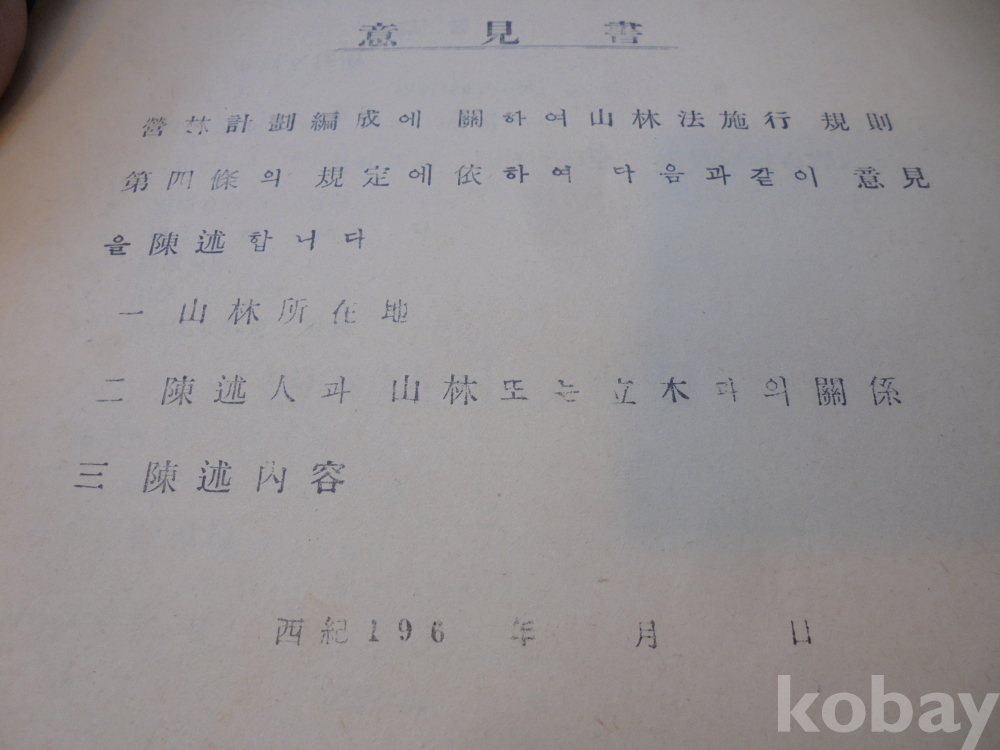 意見書
營林計劃編成에 關하여山林法施行 規則
第四條의 規定에依하여 다음과같이 意見
을陳述합니다
一 山林所在地
二 陳述人과 山林또는立木과의關係
三 陳述內容
西紀196 年 月 日
kobay